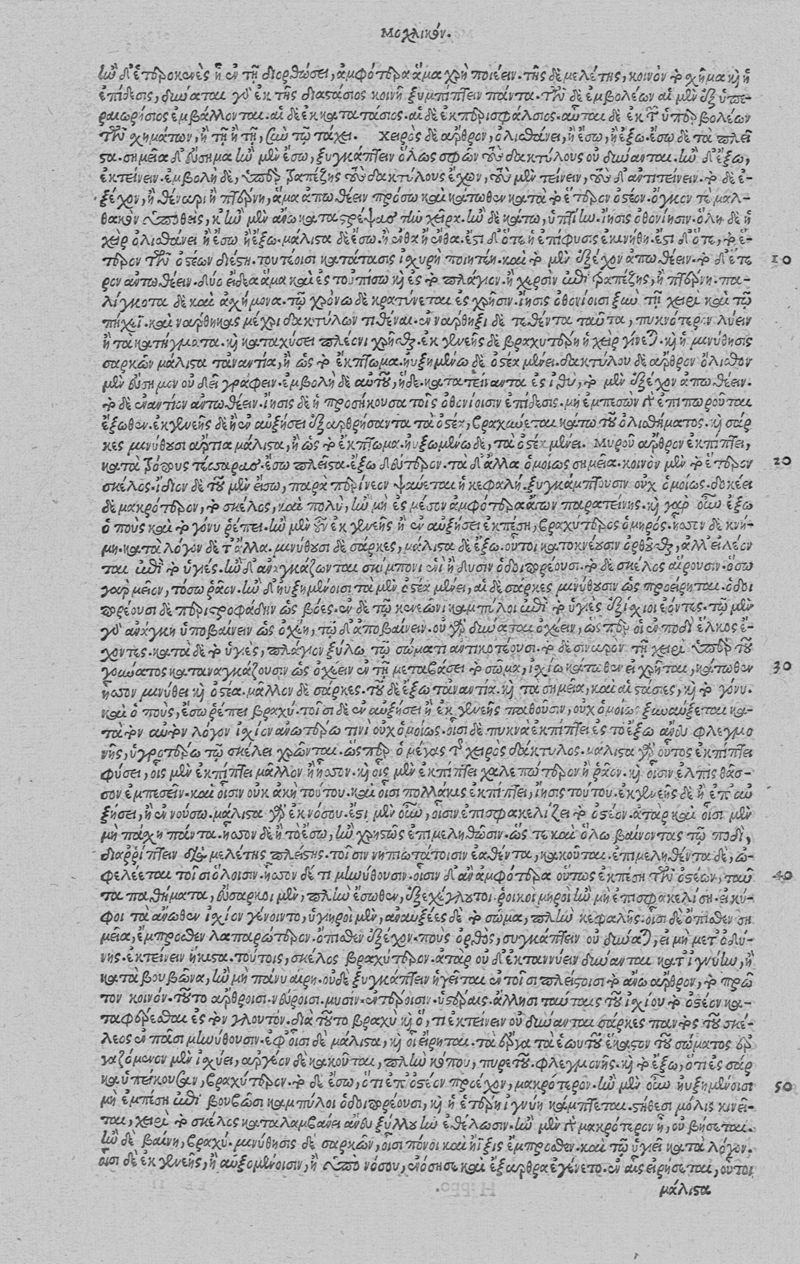 Μοχλικόν.
ἢν δ' ἑτεροκλινὲς ᾖ ἐν τῇ διορθώσει, ἀμφότερα ἅμα χρὴ ποιέειν. τῆς δὲ μελέτης, κοινὸν τὸ χῆμα καὶ ἡ
ἐπίδεσις, δύναται γὰρ ἐκ τῆς διατάσιος κοινῇ ξυμπίπτειν πάντα. τῶν δὲ ἐμβολέων αἱ μὲν ἐξ ὑπε-
ραιωρήσιος ἐμβάλλονται. αἱ δὲ ἐκ κατατάσιος. αἱ δὲ ἐκ περισφάλσιος. αὗται δὲ ἐκ τῶν ὑπερβολέων
τῶν χημάτων, ἢ τῇ ἢ τῇ, σὺν τῷ τάχει. Χειρὸς δὲ ἄρθρον, ὀλισθάνει, ἢ ἔσω, ἢ ἔξω. ἔσω δὲ τὰ πλεῖ
στα. σημεῖα δ' εὔσημα. ἢν μὲν ἔσω, ξυγκάμπτειν ὅλως σφῶν τοὺς δακτύλους οὐ δύνανται. ἢν δ' ἔξω,
ἐκτείνειν. ἐμβολὴ δὲ, ὑπὲρ τραπέζης τοὺς δακτύλους ἔχων, τοὺς μὲν τείνειν, τοὺς δ' ἀντιτείνειν. τὸ δὲ ἐ-
ξέχον, ἢ θέναρι ἢ πτέρνῃ, ἅμα ἀπωθέειν πρόσω καὶ κάτωθεν κατὰ τὸ ἕτερον ὀστέον. ὄγκον τε μαλ-
θακὸν ὑποθεὶς, κἢν μὲν ἄνω καταστρέψας τὴν χεῖρα. ἢν δὲ κάτω, ὑπτίην. ἴησις ὀθονίησιν. ὅλη δὲ ἡ
χεὶρ ὀλισθάνει ἢ ἔσω ἢ ἔξω. μάλιστα δὲ ἔσω. ἢ ἔνθα ἢ ἔνθα. ἔστι δ' ὅτε ἡ ἐπίφυσις ἐκινήθη. ἔστι δ' ὅτε, τὸ ἕ-
τερον τῶν ὀστέων διέστη. τουτέοισι κατάτασις ἰσχυρὴ ποιητέη. καὶ τὸ μὲν ἐξέχον ἀπωθέειν. τὸ δ' ἕτε-
10
ρον ἀντωθέειν. δύο εἴδεα ἅμα καὶ ἐς τοὐπίσω καὶ ἐς τὸ πλάγιον. ἢ χερσὶν ἐπὶ τραπέζης, ἢ πτέρνῃ. πα-
λίγκοτα δὲ καὶ ἀχήμονα. τῷ χρόνῳ δὲ κρατύνεται ἐς χρῆσιν. ἴησις ὀθονίοισι ξὺν τῇ χειρὶ καὶ τῷ
πήχεϊ. καὶ νάρθηκας μέχρι δακτύλων τιθέναι. ἐν νάρθηξι δὲ τεθέντα ταῦτα, πυκνότερον λύειν
ἢ τὰ κατήγματα. καὶ καταχύσει πλέονι χρῆσθαι. ἐκ γενεῆς δὲ βραχυτέρη ἡ χεὶρ γίνεται. καὶ ἡ μινύθησις
σαρκῶν μάλιστα τἀναντία, ἢ ὡς τὸ ἔκπτωμα. ηὐξημένῳ δὲ ὀστέα μένει. δακτύλου δὲ ἄρθρον ὀλισθὸν
μὲν εὔσημον οὐ δεῖ γράφειν. ἐμβολὴ δὲ αὐτοῦ, ἥδε. κατατείναντα ἐς ἰθὺ, τὸ μὲν ἐξέχον ἀπωθέειν.
τὸ δὲ ἐναντίον ἀντωθέειν. ἴησις δὲ ἡ προσήκουσα τοῖς ὀθονίοισιν ἐπίδεσις. μὴ ἐμπεσὼν γὰρ ἐπιπωροῦται
ἔξωθεν. ἐκ γενεῆς δὲ ἢ ἐν αὐξήσει ἐξαρθρήσαντα τὰ ὀστέα, βραχύνεται κάτω τοῦ ὀλισθήματος. καὶ σάρ
κες μινύθουσι ἀντία μάλιστα, ἢ ὡς τὸ ἔκπτωμα. ηὐξομένῳ δὲ, τὰ ὀστέα μένει. Μηροῦ ἄρθρον ἐκπίπτει,
κατὰ τρόπους τέσσαρας. ἔσω πλεῖστα. ἔξω δεύτερον. τὰ δ' ἄλλα ὁμοίως. σημεῖα. κοινὸν μὲν τὸ ἕτερον
20
σκέλος. ἴδιον δὲ τοῦ μὲν εἴσω, παρὰ περίνεον ψαύεται ἡ κεφαλή. ξυγκάμπτουσιν οὐχ ὁμοίως. δοκέει
δὲ μακρότερον, τὸ σκέλος, καὶ πολὺ, ἢν μὴ ἐς μέσον ἀμφότερα ἄγων παρατείνῃς. καὶ γὰρ οὖν ἔξω
ὁ ποὺς καὶ τὸ γόνυ ῥέπει. ἢν μὲν οὖν ἐκ γενεῆς ἢ ἐν αὐξήσει ἐκπέσῃ, βραχύτερος ὁ μηρός. ἧσσον δὲ κνή-
μη. κατὰ λόγον δὲ τἄλλα. μινύθουσι δὲ σάρκες, μάλιστα δὲ ἔξω. οὗτοι κατοκνέουσιν ὀρθοῦσθαι, ἀλλ' εἰλέον
ται ἐπὶ τὸ ὑγιές. ἢν δ' ἀναγκάζωνται σκίμπονι ἑνὶ ἢ δυσὶν ὁδοιπορέουσι. τὸ δὲ σκέλος αἴρουσιν. ὅσῳ
γὰρ μεῖον, τόσῳ ῥᾷον. ἢν δ' ηὐξημένοισι τὰ μὲν ὀστέα μένει, αἱ δὲ σάρκες μινύθουσιν ὡς προείρηται. ὁδοι
πορέουσι δὲ περιστροφάδην ὡς βόες. ἐν δὲ τῷ κενεῶνι καμπύλοι ἐπὶ τὸ ὑγιὲς ἐξίσχιοι ἐόντες. τῷ μὲν
γὰρ ἀνάγκη ὑποβαίνειν ὡς ὀχέῃ, τῷ δ' ἀποβαίνειν. οὐ γὰρ δύναται ὀχέειν, ὥσπερ οἱ ἐν ποδὶ ἕλκος ἔ-
χοντες. κατὰ δὲ τὸ ὑγιὲς, πλάγιον ξύλῳ τῷ σώματι ἀντικοντέουσι. τὸ δὲ σιναρὸν τῇ χειρὶ ὑπὲρ τοῦ
γούνατος καταναγκάζουσιν ὡς ὀχέειν ἐν τῇ μεταβάσει τὸ σῶμα, ἰσχίῳ κάτωθεν εἰ χρῆται, κάτωθεν
30
ἧσσον μινύθει καὶ ὀστέα. μᾶλλον δὲ σάρκες. τοῦ δὲ ἔξω τἀναντία. καὶ τὰ σημεῖα, καὶ αἱ στάσιες, καὶ τὸ γόνυ.
καὶ ὁ ποὺς, ἔσω ῥέπει βραχύ. τοῖσι δὲ ἐν αὐξήσει ἢ ἐκ γενεῆς παθοῦσιν, οὐχ ὁμοίως ξυναύξεται κα-
τὰ τὸν αὐτὸν λόγον ἰσχίον ἀνωτέρω τινὶ οὐχ ὁμοίως. οἷσι δὲ πυκνὰ ἐκπίπτει ἐς τὸ ἔξω ἄνευ φλεγμο
νῆς, ὑγροτέρῳ τῷ σκέλει χρῶνται. ὥσπερ ὁ μέγας τῆς χειρὸς δάκτυλος. μάλιστα γὰρ οὗτος ἐκπίπτει
φύσει, οἷς μὲν ἐκπίπτει μᾶλλον ἢ ἧσσον. καὶ οἷς μὲν ἐκπίπτει χαλεπώτερον ἢ ῥᾷον. καὶ οἷσιν ἐλπὶς θᾶσ-
σον ἐμπεσεῖν. καὶ οἷσιν οὐκ ἄκη τούτου. καὶ οἷσι πολλάκις ἐκπίπτει, ἴησις τούτου. ἐκ γενεῆς δὲ ἢ ἐπ' αὐ
ξήσει, ἢ ἐν νούσῳ. μάλιστα γὰρ ἐκ νόσου. ἔστι μὲν οὖν, οἷσιν ἐπισφακελίζει τὸ ὀστέον. ἀτὰρ καὶ οἷσι μὲν
μὴ πάσχῃ πάντα. ἧσσον δὲ ἢ τὸ ἔσω, ἢν χρηστῶς ἐπιμεληθῶσιν. ὥστε καὶ ὅλῳ βαίνοντας τῷ ποδὶ,
διαρρίπτειν διὰ μελέτης πλείστης. τοῖσιν νηπιωτάτοισιν ἐαθέντα, κακοῦται. ἐπιμεληθέντα δὲ, ὠ-
φελέεται. τοῖσι ὅλοισιν. ἧσσον δέ τι μινύθουσιν. οἷσιν δ' ἂν ἀμφότερα οὕτως ἐκπέσῃ τῶν ὀστέων, ταὐ
40
τὰ παθήματα, εὔσαρκοι μὲν, πλὴν ἔσωθεν, ἐξεχέγλουτοι. ῥοικοὶ μηροὶ ἢν μὴ ἐπισφακελίσῃ. εἰ κυ-
φοὶ τὰ ἄνωθεν ἰσχίον γένοιντο, ὑγιηροὶ μὲν, ἀναυξέες δὲ τὸ σῶμα, πλὴν κεφαλῆς. οἷσι δὲ ὄπιθεν ση
μεῖα, ἔμπροσθεν λαπαρώτερον. ὄπιθεν ἐξέχον. ποὺς ὀρθὸς, συγκάμπτειν οὐ δύναται, εἰ μὴ μετ' ὀδύ-
νης. ἐκτείνειν ἥκιστα. τούτοις, σκέλος βραχύτερον. ἀτὰρ οὐδ' ἐκτανύειν δύνανται κατ' ἰγνύην, ἢ
κατὰ βουβῶνα, ἢν μὴ πάνυ αἴρῃ. οὐδὲ ξυγκάμπτειν. ἡγεῖται ἐν τοῖσι πλείστοισι τὸ ἄνω ἄρθρον, τὸ πρῶ
τον κοινόν. τοῦτο ἄρθροισι. νεύροισι. μυσίν. ἐντέροισι. ὑστέραις. ἄλλῃσι. ταύταις τοῦ ἰσχίου τὸ ὀστέον κα-
ταφέρεται ἐς τὸν γλουτόν. διὰ τοῦτο βραχὺ καὶ ὅ, τι ἐκτείνειν οὐ δύνανται. σάρκες παντὸς τοῦ σκέ-
λεος ἐν πᾶσι μινύθουσιν. ἐφ' οἷσι δὲ μάλιστα, καὶ οἷ εἴρηται. τὰ ἔργα τὰ ἑωυτοῦ ἕκαστον τοῦ σώματος ἐρ
γαζόμενον μὲν ἰσχύει, ἀργέον δὲ κακοῦται, πλὴν κόπου, πυρετοῦ. φλεγμονῆς. καὶ τὸ ἔξω, ὅτι ἐς σάρ
κα ὑπείκουσαν, βραχύτερον. τὸ δὲ ἔσω, ὅτι ἐπ' ὀστέον προέχον, μακρότερον. ἢν μὲν οὖν ηὐξημένοισι
50
μὴ ἐμπέσῃ ἐπὶ βουβῶσι καμπύλοι ὁδοιπορέουσι, καὶ ἡ ἑτέρη ἰγνύη κάμπτεται. στήθεσι μόλις κινεῖ-
ται, χειρὶ τὸ σκέλος καταλαμβάνει ἄνευ ξύλου ἢν ἐθέλωσιν. ἢν μὲν γὰρ μακρότερον ᾖ, οὐ βήσεται.
ἢν δὲ βαίνῃ, βραχύ. μινύθησις δὲ σαρκῶν, οἷσι πόνοι καὶ ἡ ἶξις ἔμπροσθεν. καὶ τῷ ὑγιεῖ κατὰ λόγον.
οἷσι δὲ ἐκ γενεῆς, ἢ αὐξομένοισιν, ἢ ὑπὸ νόσου, ἐνόσησε καὶ ἔξαρθρα ἐγένετο. ἐν αἷς εἰρήσεται, οὗτοι
μάλιστα